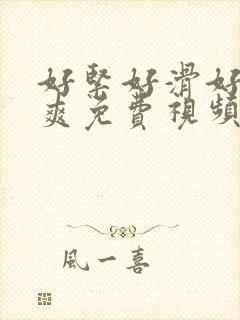 好緊好滑好
爽免費視頻
風一喜